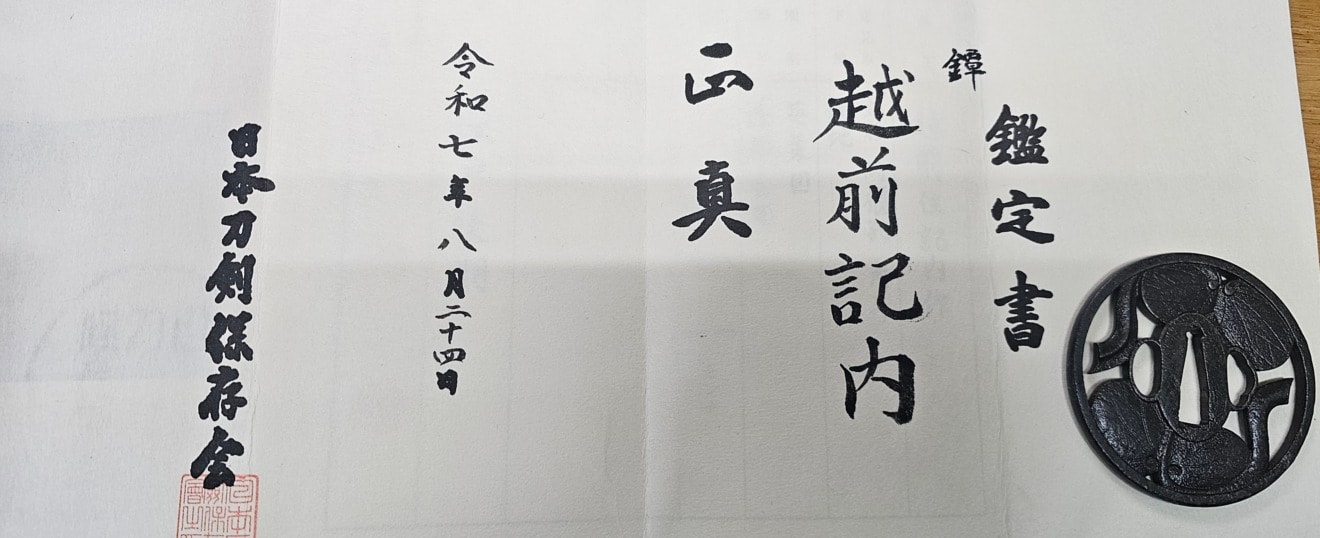 鑑定書
鐔
越前記内
正真
令和七年八月二十四日
日本刀剣保存会